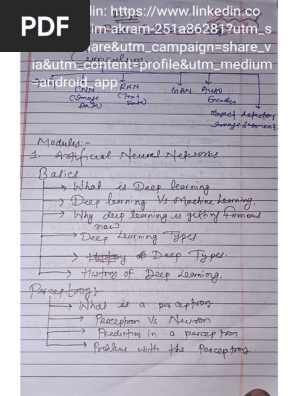 PDF
din: https://www.linkedin.co
im-akram-251a86281?utm_s
are&utm_campaign=share_v
ia&utm_content=profile&utm_medium
=android_app
Curriculum
CNN
(Image
Data)
RNN
(Text
Data)
GAN
Auto
Encoder
object detection
Image
Modules:-
1. Artificial Neural Networks
Basics
→ What is Deep learning
→ Deep learning Vs Machine Learning.
→ Why deep learning is getting famous
now
→ Deep Learning Types
→ Deep Types.
→ History of Deep Learning.
Perceptron:
→ What is a perceptron
→ Perceptron Vs Neuron
→ Prediction in a perceptron
→ Problem with the Perceptron.